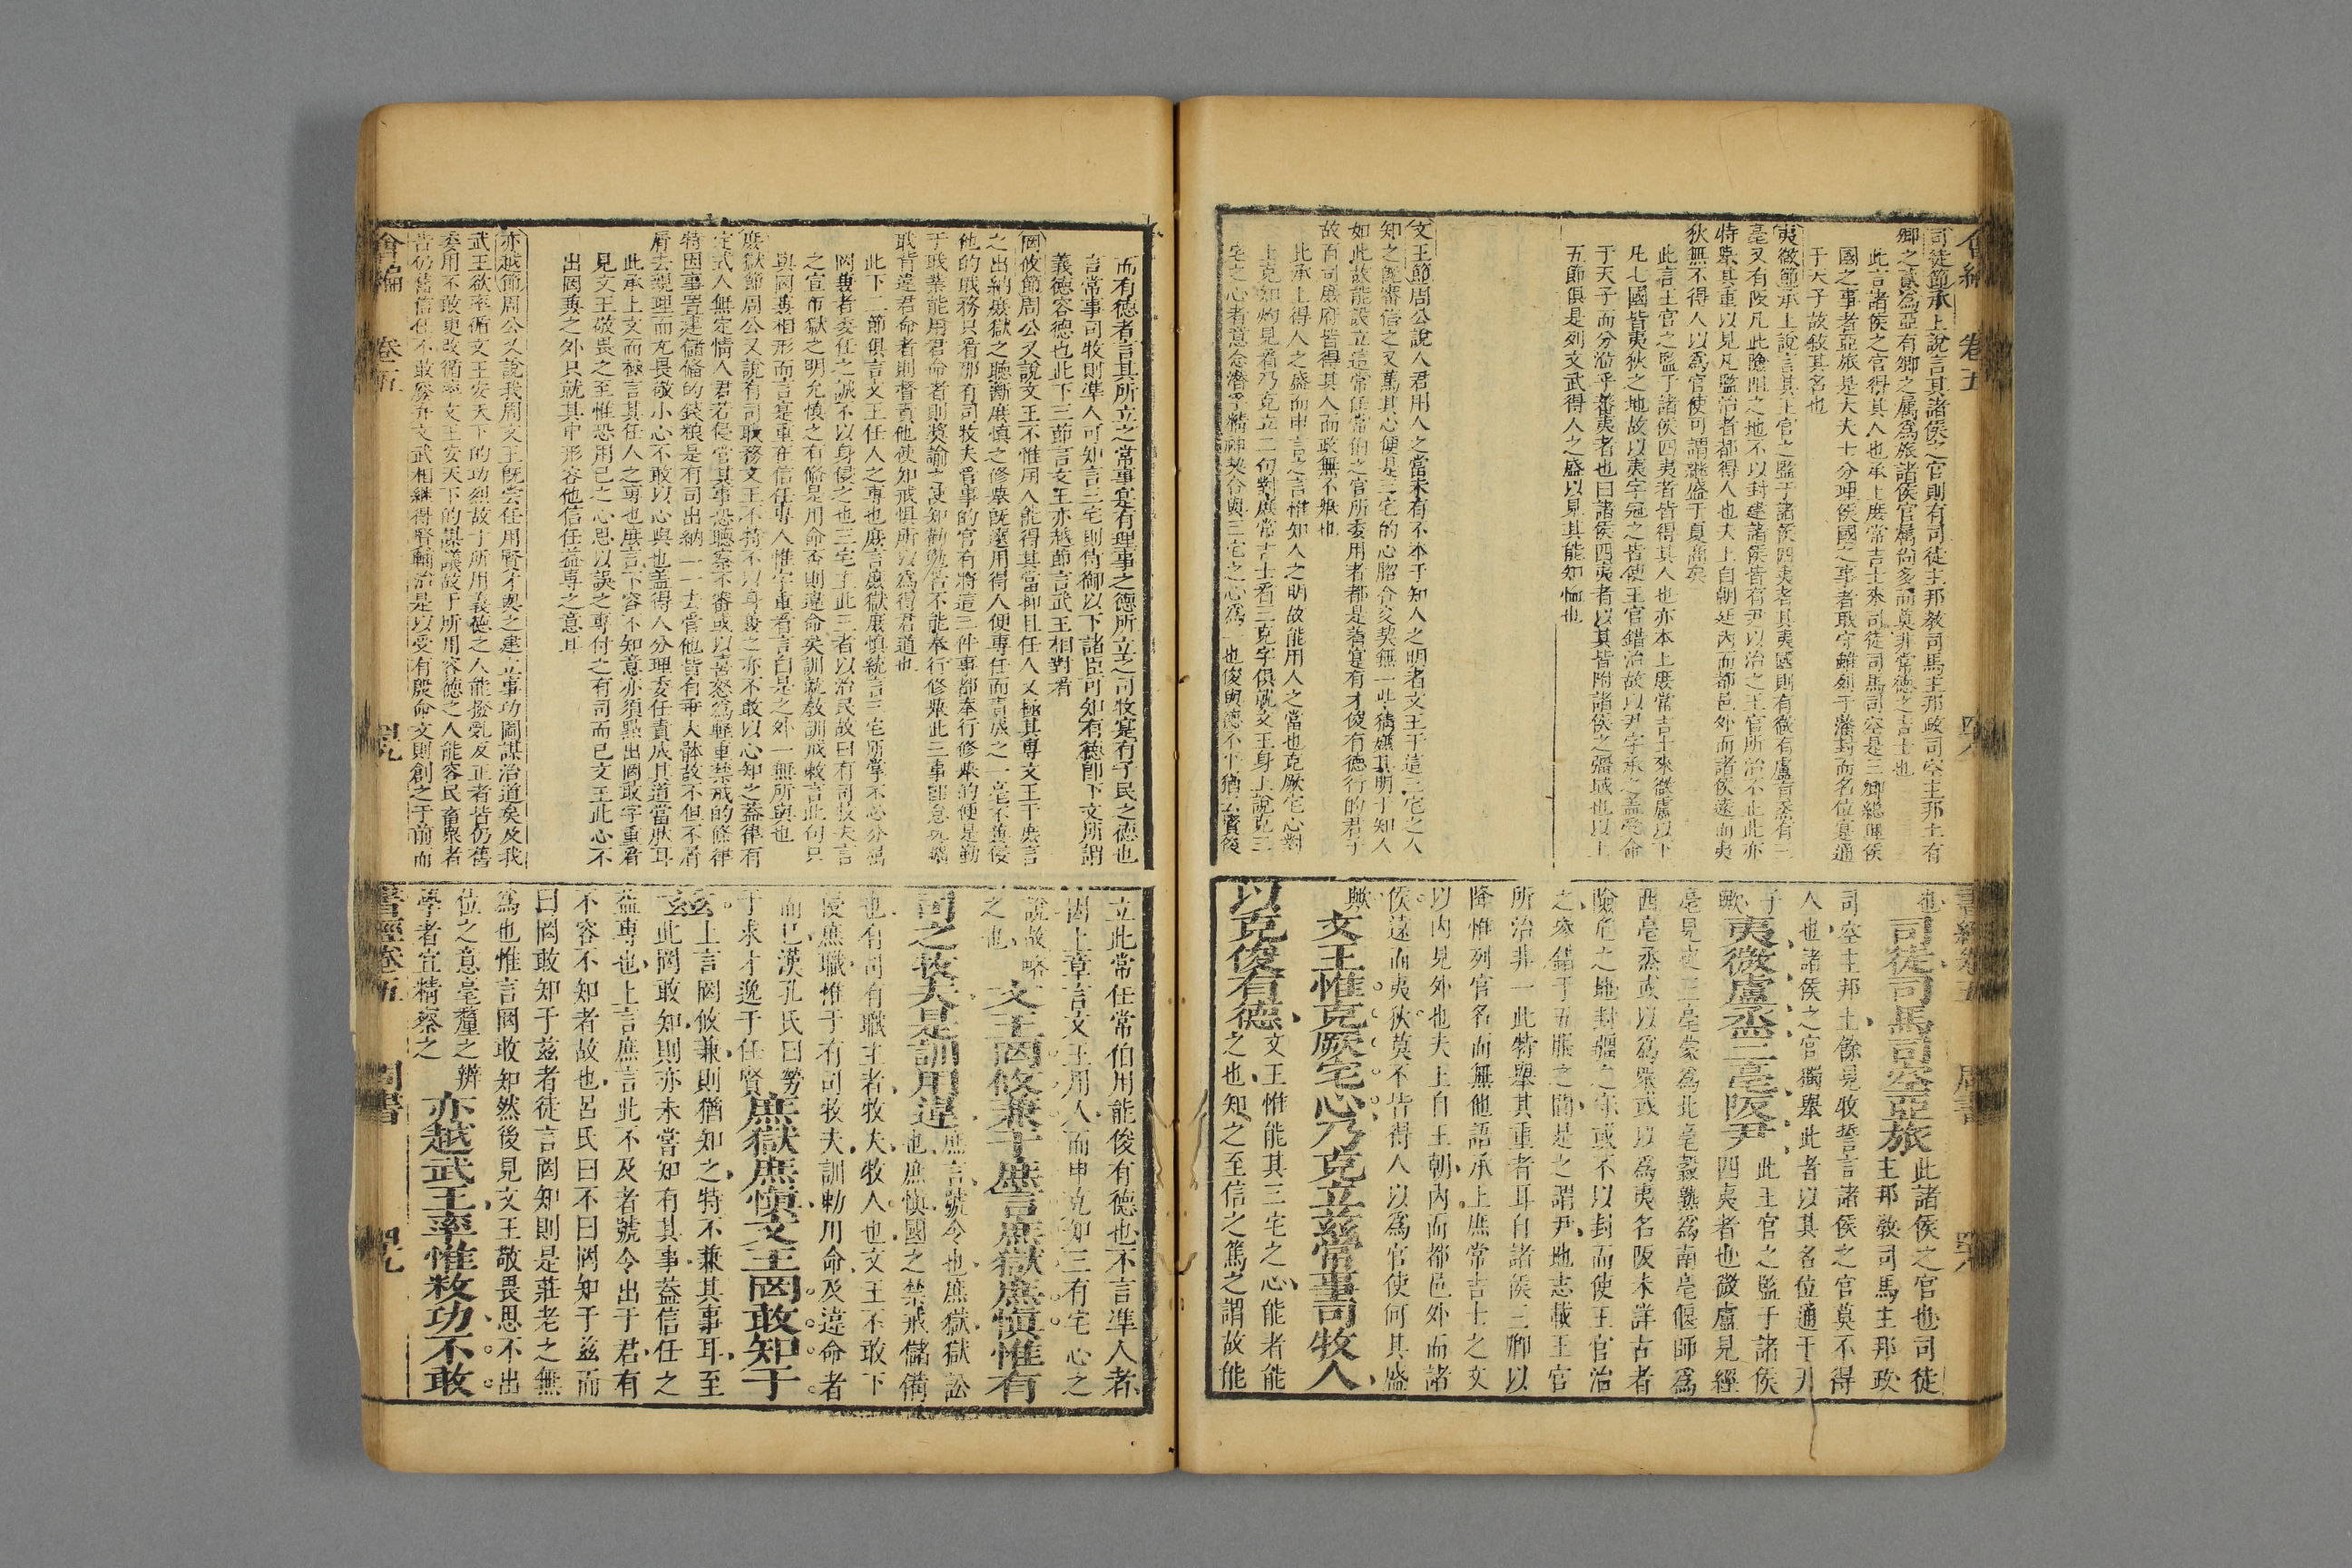 會編 卷五 四八
司徒節承上說言其諸侯之官則有司徒主邦敎司馬主邦政司空主邦土有
卿之貳為亞有卿之屬為旅諸侯官屬尚多而莫非常德之吉士也
此言諸侯之官得其人也承上庶常吉士來司徒司馬司空是三卿總理侯
國之事者亞旅是大夫士分理侯國之事者職守雖列于藩封而名位寔通
于天子故敘其名也
夷微節承上說言其王官之監于諸侯四夷者其夷國則有微有盧有烝有三
亳又有阪凡此險阻之地不以封建諸侯皆有尹以治之王官所治不止此亦
特舉其重以見凡監治者都得人也夫上自朝廷內而都邑外而諸侯遠而夷
狄無不得人以為官使可謂繼盛于夏商矣
此言王官之監于諸侯四夷者皆得其人也亦本上庶常吉士來微盧以下
凡七國皆夷狄之地故以夷字冠之皆使王官錯治故以尹字承之蓋受命
于天子而分涖乎蕃夷者也曰諸侯四夷者以其皆附諸侯之彊域也以上
五節俱是列文武得人之盛以見其能知恤也
文王節周公說人君用人之當未有不本于知人之明者文王于這三宅之人
知之旣審信之又篤其心便是三宅的心脗合交契無一些猜嫌其明于知人
如此故能設立這常任常伯之官所委用者都是着寔有才俊有德行的君子
故百司庶府皆得其人而政無不舉也
此承上得人之盛而申言之言惟知人之明故能用人之當也克厥宅心對
上克知灼見看乃克立二句對庶常吉士看三克字俱就文王身上說克三
宅之心者意念潛孚精神契合與三宅之心為一也俊與德不平猶云賓俊
書經卷五 周書 四八
也 司徒司馬司空亞旅 此諸侯之官也司徒
主邦敎司馬主邦政
司空主邦土餘見牧誓言諸侯之官莫不得
人也諸侯之官獨舉此者以其名位通于天
子歟 夷微盧烝三亳阪尹 此王官之監于諸侯
四夷者也微盧見經
亳見史三亳蒙為北亳穀熟為南亳偃師為
西亳烝或以為衆或以為夷名阪未詳古者
險危之地封疆之守或不以封而使王官治
之參錯于五服之間是之謂尹地志載王官
所治非一此特舉其重者耳自諸侯三卿以
降惟列官名而無他語承上庶常吉士之文
以內見外也夫上自王朝內而都邑外而諸
侯遠而夷狄莫不皆得人以為官使何其盛
歟 文王惟克厥宅心乃克立茲常事司牧人
以克俊有德 文王惟能其三宅之心能者能
之也知之至信之篤之謂故能
而有德者言其所立之常事寔有理事之德所立之司牧寔有子民之德也
言常事司牧則準人可知言三宅則侍御以下諸臣可知有德卽下文所謂
義德容德也此下三節言文王亦越節言武王相對看
罔攸節周公又說文王不惟用人能得其當抑且任人又極其專文王于庶言
之出納庶獄之聽斷庶慎之修舉旣選用得人便專任而責成之一毫不兼侵
他的職務只看那有司牧夫管事的官有將這三件事都奉行修舉的便是勤
于職業能用君命者則獎諭之使知勸勉若不能奉行修舉此三事
職背違君命者則督責他使知戒懼所以為得君道也
此下二節俱言文王任人之專也庶言庶獄庶慎統言三宅所掌不必分屬
罔兼者委任之誠不以身侵之也三宅主此三者以治民故曰有司牧夫言
之宣布獄之明允慎之有脩是用命否則違命矣訓就敎訓戒敕言此句只
與罔兼相形而言寔重在信任專人惟字重看言自是之外一無所與也
庶獄節周公又說有司職務文王不特不以身兼之亦不敢以心知之蓋律有
定式人無定情人君若侵官其事恐聽察不審或以喜怒為輕重禁戒的條律
特因事置建儲偹的錢糧是有司出納一一去管他皆有乖大體故不但不屑
屑去親理而尤畏敬小心不敢以心與也盖得人分理委任責成其道當然耳
此承上文而極言其任人之專也庶言下容不知意亦須點出罔敢字重看
見文王敬畏之至惟恐用已之心思以誤之專付之有司而已文王此心不
出罔兼之外只就其中形容他信任益專之意耳
亦越節周公又說我周文王旣嘗任用賢才與之建立事功圖謀治道矣及我
武王欲率循文王安天下的功烈故于所用義德之人能撥亂反正者皆仍舊
委用不敢更改循率文王安天下的謀議故于所用容德之人能容民畜衆者
皆仍舊信任不敢廢弃文武相繼得賢輔治是以受有殷命文則創之于前而
會編 卷五 四九
立此常任常伯用能俊有德也不言準人者
因上章言文王用人而申克知三有宅心之
說故略
之也 文王罔攸兼于庶言庶獄庶慎惟有
司之牧夫是訓用違 庶言號令也庶獄獄訟
也庶慎國之禁戒儲備
也有司有職主者牧夫牧人也文王不敢下
侵庶職惟于有司牧夫訓勅用命及違命者
而已漢孔氏曰勞
于求才逸于任賢 庶獄庶慎文王罔敢知于
茲 上言罔攸兼則猶知之特不兼其事耳至
此罔敢知則亦未嘗知有其事蓋信任之
益專也上言庶言此不及者號令出于君有
不容不知者故也呂氏曰不曰罔知于茲而
曰罔敢知于茲者徒言罔知則是莊老之無
為也惟言罔敢知然後見文王敬畏思不出
位之意毫釐之辨
學者宜精察之 亦越武王率惟敉功不敢
書經卷五 周書 四九